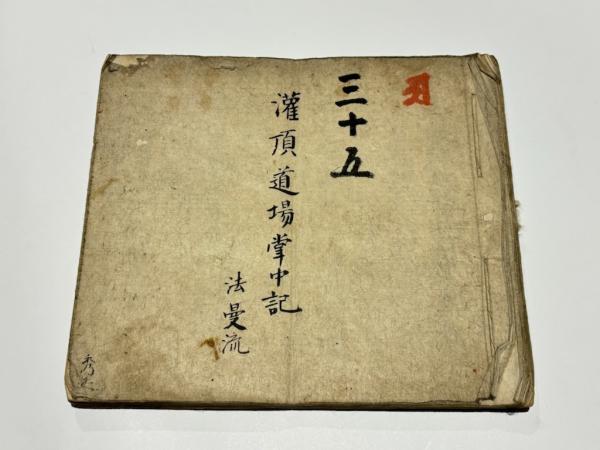 三十五
灌頂道場掌中記
法曼流
秀